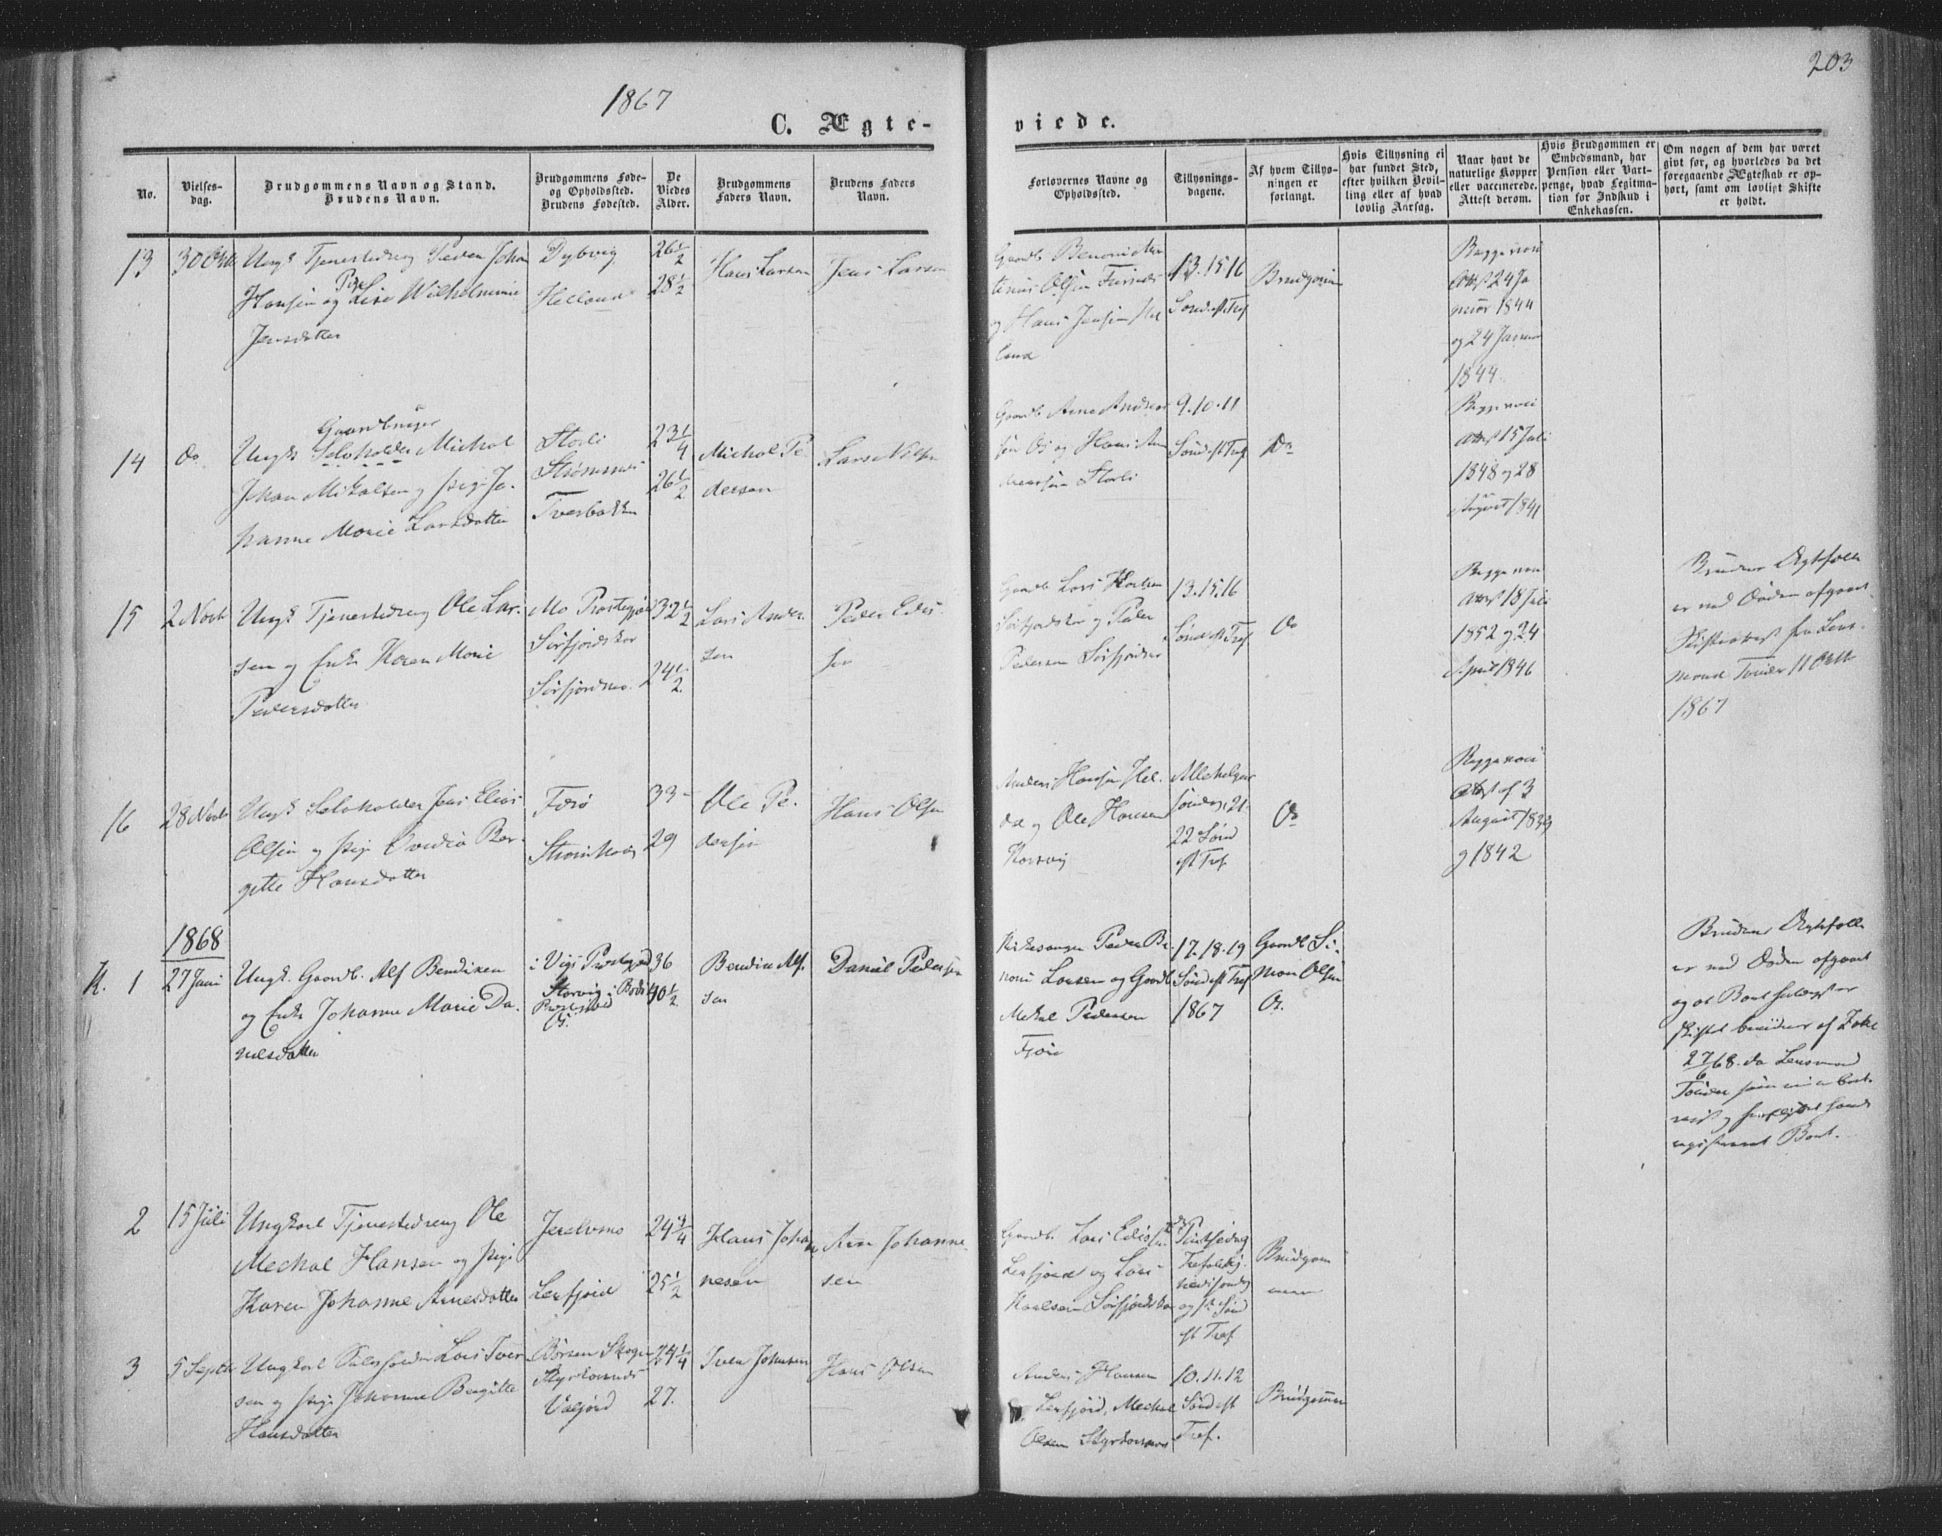 203
1867
C. Ægte-
viede.
No.
Vielses-
dag.
Brudgommens Navn og Stand.
Brudens Navn.
Brudgommens Føde-
og Opholdssted.
Brudens Fødested.
De
Viedes
Alder.
Brudgommens
Faders Navn.
Brudens Faders
Navn.
Forlovernes Navne og
Opholdssted.
Tillysnings-
dagene.
Af hvem Tillys-
ningen er
forlangt.
Hvis Tillysning ei
har fundet Sted,
efter hvilken Bevil-
ling eller af hvad
lovlig Aarsag.
Naar havt de
naturlige Kopper
eller vaccinerede.
Attest derom.
Hvis Brudgommen er
Embedsmand, har
Pension eller Vart-
penge, hvad Legitma-
tion for Indskud i
Enkekassen.
Om nogen af dem har været
givt før, og hvorledes da det
foregaaende Ægteskab er op-
hørt, samt om lovligt Skifte
er holdt.
13
30 Oct
Ungk Tjenestedreng Peder Johan
Hansen og Pige Lise Wilhelmine
Jensdatter
Dybvig
Helland
26 1/2
28 1/2
Hans Larsen
Jens Larsen
Gaardb
Olsen
og Hans Jensen Hel
land
13. 15. 16
Sønd. eft. Tref
Brudgom
Begge vacc
Attest 24 Ja
nuar 1844
og 24 Januar
1844
14
do
Gaardbruger
Ungk Selvholder Michal
Johan Mikalsen og Pige Jo-
hanne Marie Larsdatter
Storli
Strømsnes
Tverbakken
23 1/4
26 1/2
Michal Pe-
dersen
Lars Nilsen
Gaardb Arne Andreas
sen Os og Hans An
dreassen Storli
9. 10. 11
Sønd eft Tref
Do
Begge vacc
attest 15 Juli
1848 og 28
August 1841
15
2 Novb
Ungk Tjenestedreng Ole Lar-
sen og Enke Karen Marie
Pedersdatter
Mo Prostegjæld
Sørfjordskar
Sørfjordmo.
32 1/2
24 1/2
Lars Ander
sen
Peder Edis
sen
Gaardb Lars Karlsen
Sørfjordskar og Peder
Pedersen Sørfjordmo
13. 15. 16
Sønd eft Tref
Do
Begge vacc
Attest 18 Juli
1852 og 24
April 1846
Brudens Ægtefælle
er ved Døden afgaaet
Skifteattest fra Lens-
mand Tonder 11 Octbr
1867
16
28 Novb
Ungk Selvholder Jens Elias
Olsen og Pige Ovedia Ber-
gitte Hansdatter
Forø
33
29
Ole Pe-
dersen
Hans Olsen
Anders Hansen Hel-
og Ole Hansen
Korsvig
Allehelgens
søndag, 21-
22 Sønd
eft Tref
Do
Begge vacc
Attest af 3
August 1839
og 1842
1868
K. 1
27 Juni
Ungk. Gaardb. Alf Bendixen
og Enke Johanne Marie Da-
nielsdatter
i Vigs Prostegjæld
Storvig i Bodø
Prostegjæld
Os.
36
40 1/2
Bendix Alf-
sen
Daniel Pedersen
Kirkesanger Peder Be-
noni Larsen og Gaardb
Mekal Pedersen
17. 18. 19
Sønd eft Tref
1867
Gaardb Si-
mon Olsen
Os.
Brudens Ægtefælle
er ved Døden afgaaet
og at Boet
27/6 68. da Lensmand
Tonder
registreret Boet.
2
15 Juli
Ungkarl Tjenestedreng Ole
Mechal Hansen og Pige
Karen Johanne Arnesdatter
Leerfjord
24 3/4
25 1/2
Hans Johan
nesen
Arn Johanne-
sen
Gaardb. Lars Edissen
Leerfjord og Lars
Karlsen Sørfjordskar
2den Pintsedag
Trefoldig-
hedssøndag
og 1ste Sønd
eft Tref
Brudgom
men
3
5 Septb
Ungkarl Selvholder Lars Iver
sen og Pige Johanne Bergitte
Hansdatter
Børsen Skogn
Styrkesnes
Valjord
24 1/4
27.
Iver Johnsen
Hans Olsen
Anders Hansen
Leerfjord, Mechal
Olsen Styrkesnes
10. 11. 12
Sønd eft
Tref.
Brudgommen